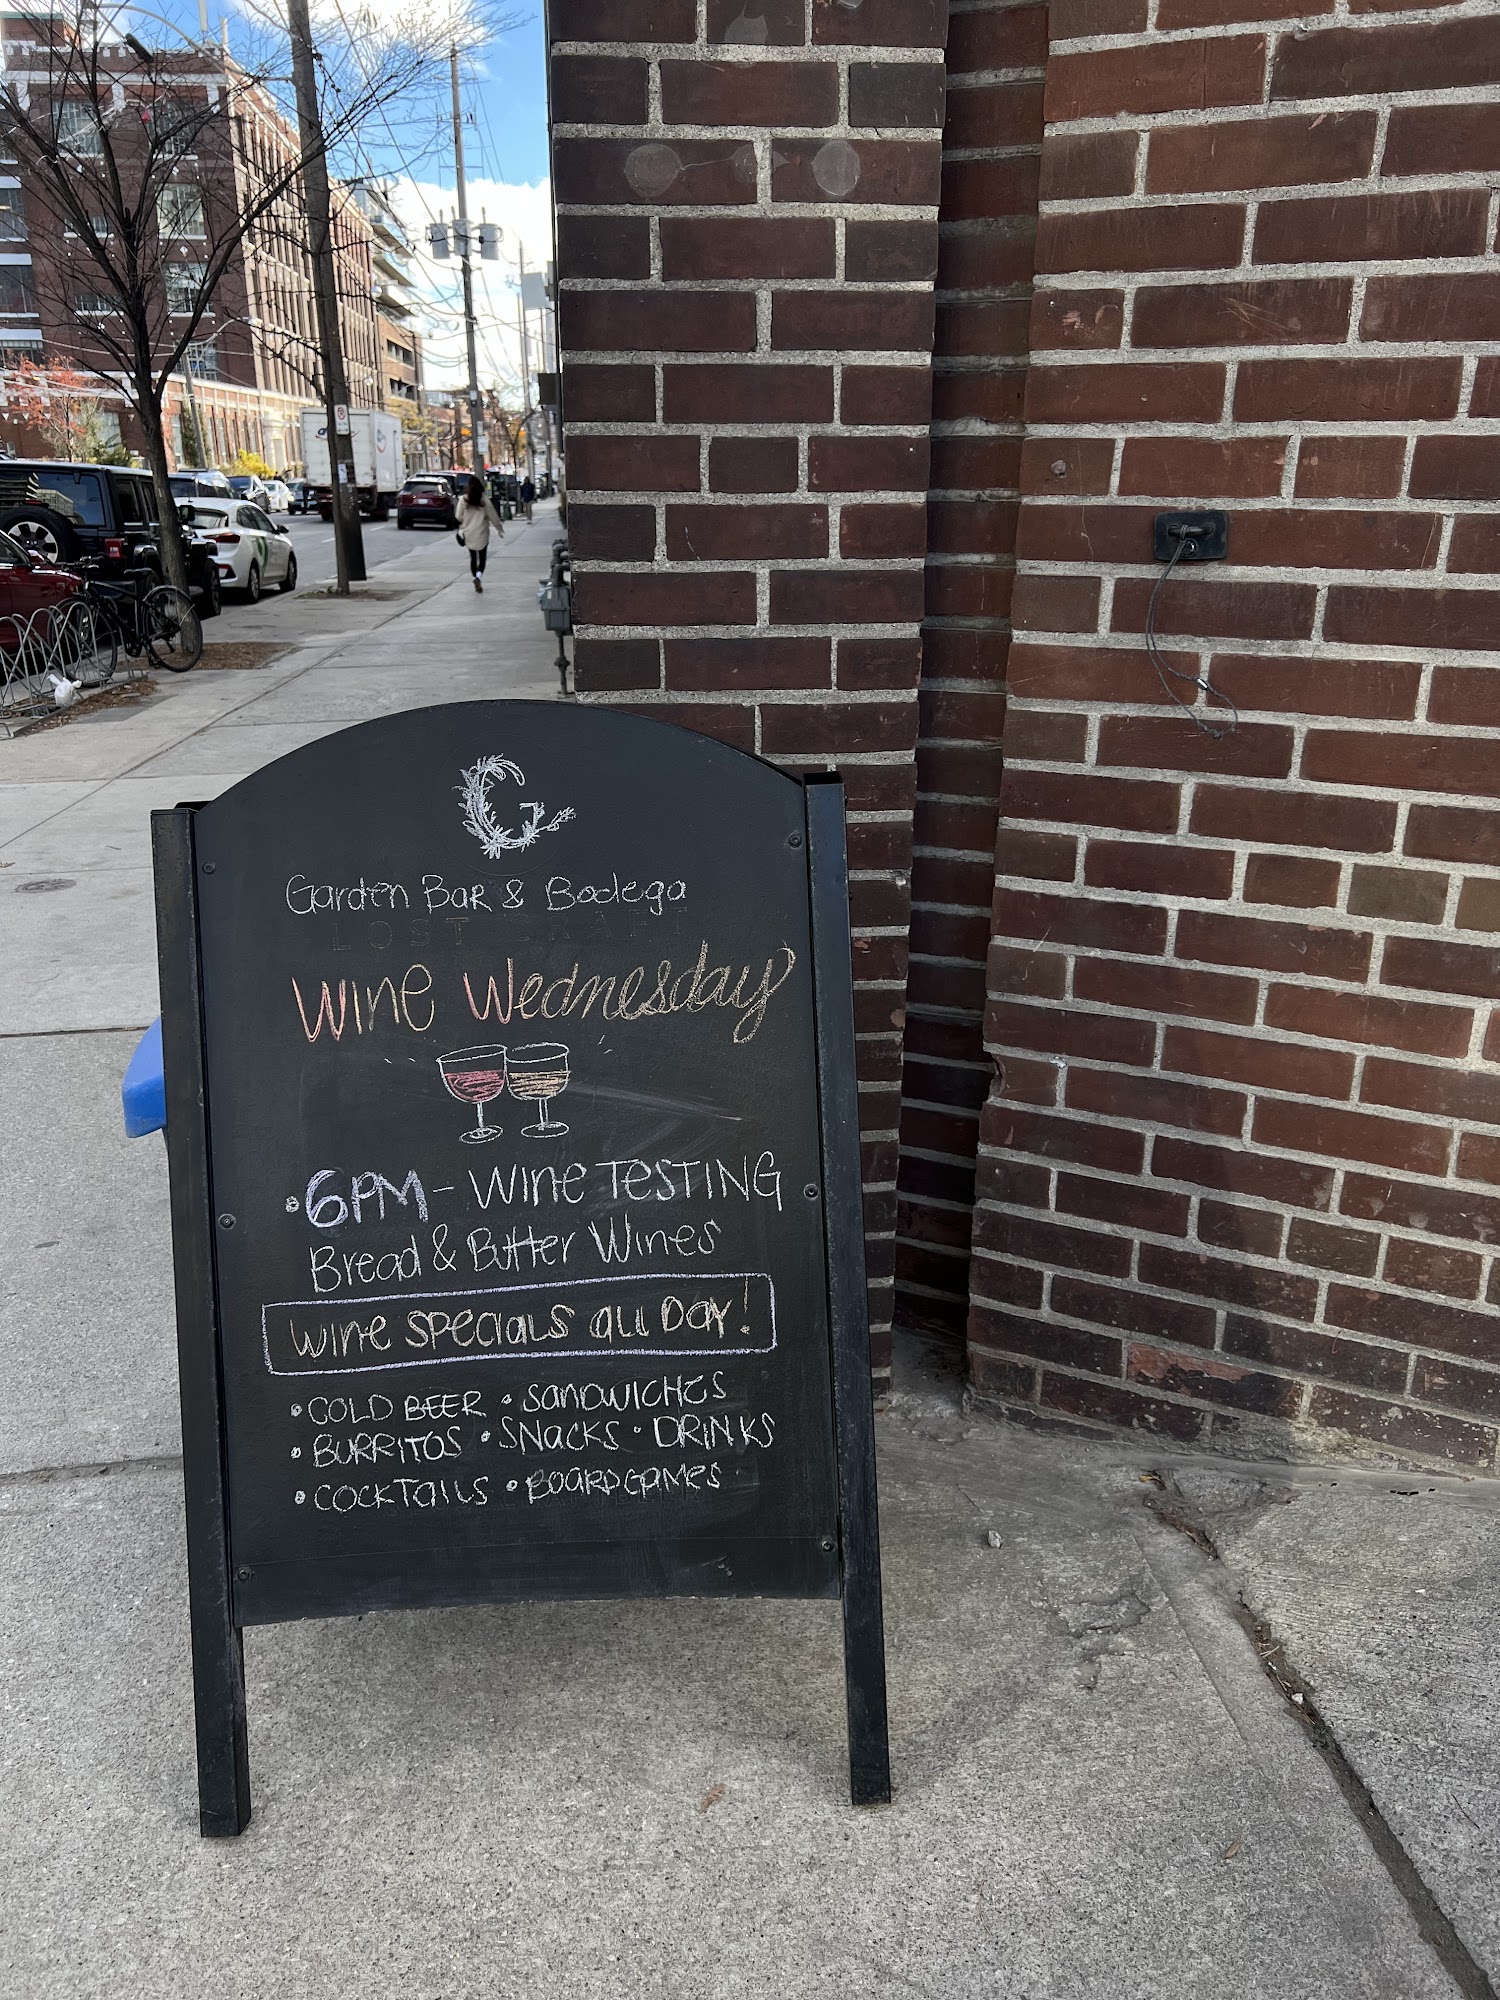 G
Garden Bar & Bodega
LOST CRAFT
Wine Wednesday
• 6PM - WINE TESTING
Bread & Butter Wines
Wine SPECIALS all DAY!
• COLD BEER • SANDWICHES
• BURRITOS • SNACKS • DRINKS
• COCKTAILS • BOARDGAMES